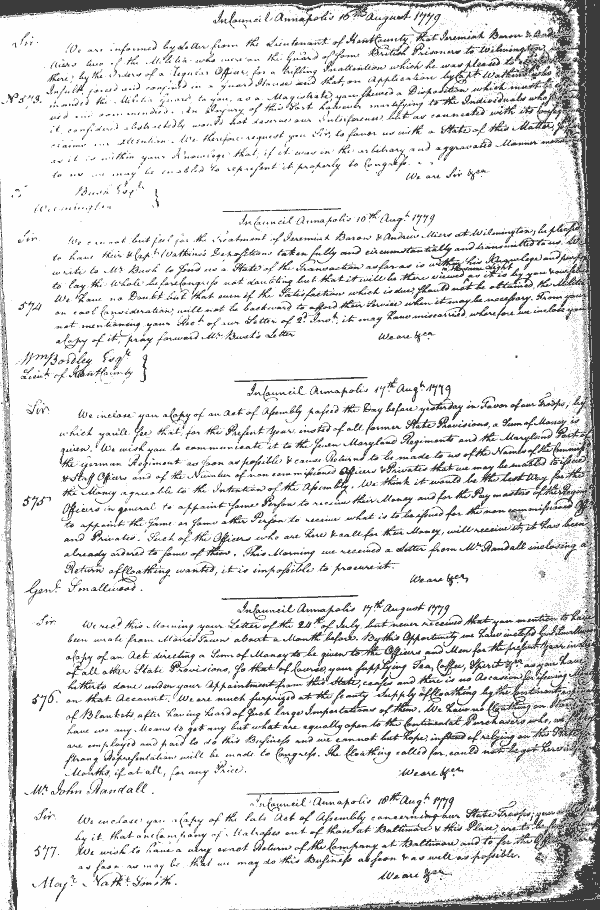 In Council Annapolis 16th August 1779
Sir.
We are informed by Letter from the Lieutenant of Kent County, that Jeremiah Baron & Andw
Miers two of the Militia who were on the Guard of some British Prisoners to Wilmington,
there, by the Orders of a Regular Officer, for a trifling Inattention which he was pleased to
Insult, joced and confined in a Guard House and that, on Application by Capt Watkins, who
No 573.
manded the Militia Guard, to you, as a Magistrate, you shewed a Disposition which must be
An Injury of this Sort however mortifying to the Individuals who
it, considered abstractedly would not deserve our Interference, but as connected with its Conseq
claims our Attention. We therefore request you Sir, to favor us with a State of this Matter, so
as it is within your Knowledge that, if it was in the arbitrary and aggravated Manner
to us we may be enabled to represent it properly to Congress.
We are Sir &ca
Bush Esqr
Wilmington
In Council Annapolis 16th Augt 1779
Sir
We cannot but feel for the Treatment of Jeremiah Baron & Andrew Miers at Wilmington, be pleased
to have their & Capt Watkins's Depositions taken fully and circumstantially and transmitted to us. We
write to Mr Bush to send us a State of the Transaction as far as is within his Knowledge and purpose
to lay the whole before Congress not doubting but that it will be there viewed as it is by you
in the same Light
We have no Doubt but that even if the Satisfaction which is due, should not be obtained, the Militia
574
on cool Consideration, will not be backward to afford their Service when it may be necessary. From your
not mentioning your Rect of our Letter of 2d Inst, it may have miscarried wherefore we inclose you
a Copy of it, pray forward Mr Bush's Letter
We are &ca
Wm Bordley Esqr
Lieut of Kent County
In Council Annapolis 17th Augt 1779
Sir
We inclose you a Copy of an Act of Assembly passed the Day before yesterday in Favor of our Troops, by
which you'll see that, for the Present Year insted of all former State Provisions, a Sum of Money is
given. We wish you to communicate it to the Seven Maryland Regiments and the Maryland Part of
the German Regiment as soon as possible & cause Returns to be made to us of the Names of the Commd
& Staff Officers and of the Number of non commissioned Officers & Privates that we may be enabled to issue
the Money agreable to the Intention of the Assembly. We think it would be the best Way for the
575
Officers in general to appoint some Person to receive their Money and for the Pay masters of the Regim
to appoint the same or some other Person to receive what is to be issued for the non commissioned Off
and Privates. Such of the Officers who are here & call for their Money, will receive it, it has been
already ordered to some of them. This Morning we received a Letter from Mr Randall inclosing a
Return of Cloathing wanted, it is impossible to procure it.
We are &ca
Genl Smallwood.
In Council Annapolis 17th August 1779
Sir.
We recd this Morning your Letter of the 24th of July but never received that you mention to have
been wrote from Morris Town about a Month before. By this Opportunity we have inclosed Genl Smallwood
a Copy of an Act directing a Sum of Money to be given to the Officers and Men for the present Year in
of all other State Provisions, so that of Course, your supplying Tea, Coffee, Spirit &ca as you have
hitherto done under your Appointment from this State, ceases and there is no Occasion for
576.
on that Account. We are much surprized at the scanty Supply of Cloathing by the Continent,
of Blankets after having heard of such large Importations of them. We have no Cloathing on Hand
have we any Means to get any but what are equally open to the Continental Purchasers who, as
are employed and paid to do this Business and we cannot but hope, instead of relying on the State,
strong Representation will be made to Congress. The Cloathing called for, could not be got here in
Months, if at all, for any Price.
We are &ca
Mr John Randall.
In Council Annapolis 18th Augt 1779
Sir
We enclose you a Copy of the late Act of Assembly concerning our State Troops, you
by it, that one Company of Matrosses out of those at Baltimore & this Place, are to be
577.
We wish to have a very exact Return of the Company at Baltimore and to see the Off
as soon as may be, that we may do this Business as soon & as well as possible.
We are &ca
Majr Nathl Smith.